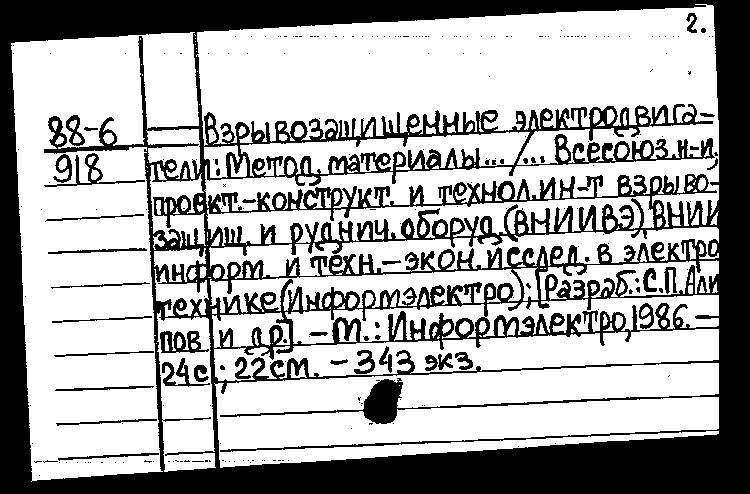 2.
88-6
918
Взрывозащищенные электродвига-
тели: Метод. материалы... /... Всесоюз. н.-и.,
проект.-конструкт. и технол. ин-т взрыво-
защищ. и руднич. оборуд. (ВНИИВЭ), ВНИИ
информ. и техн.-экон. исслед. в электро
технике (Информэлектро); [Разраб.: С.П.Али
пов и др.]. - М.: Информэлектро, 1986. -
24с.; 22см. - 343 экз.